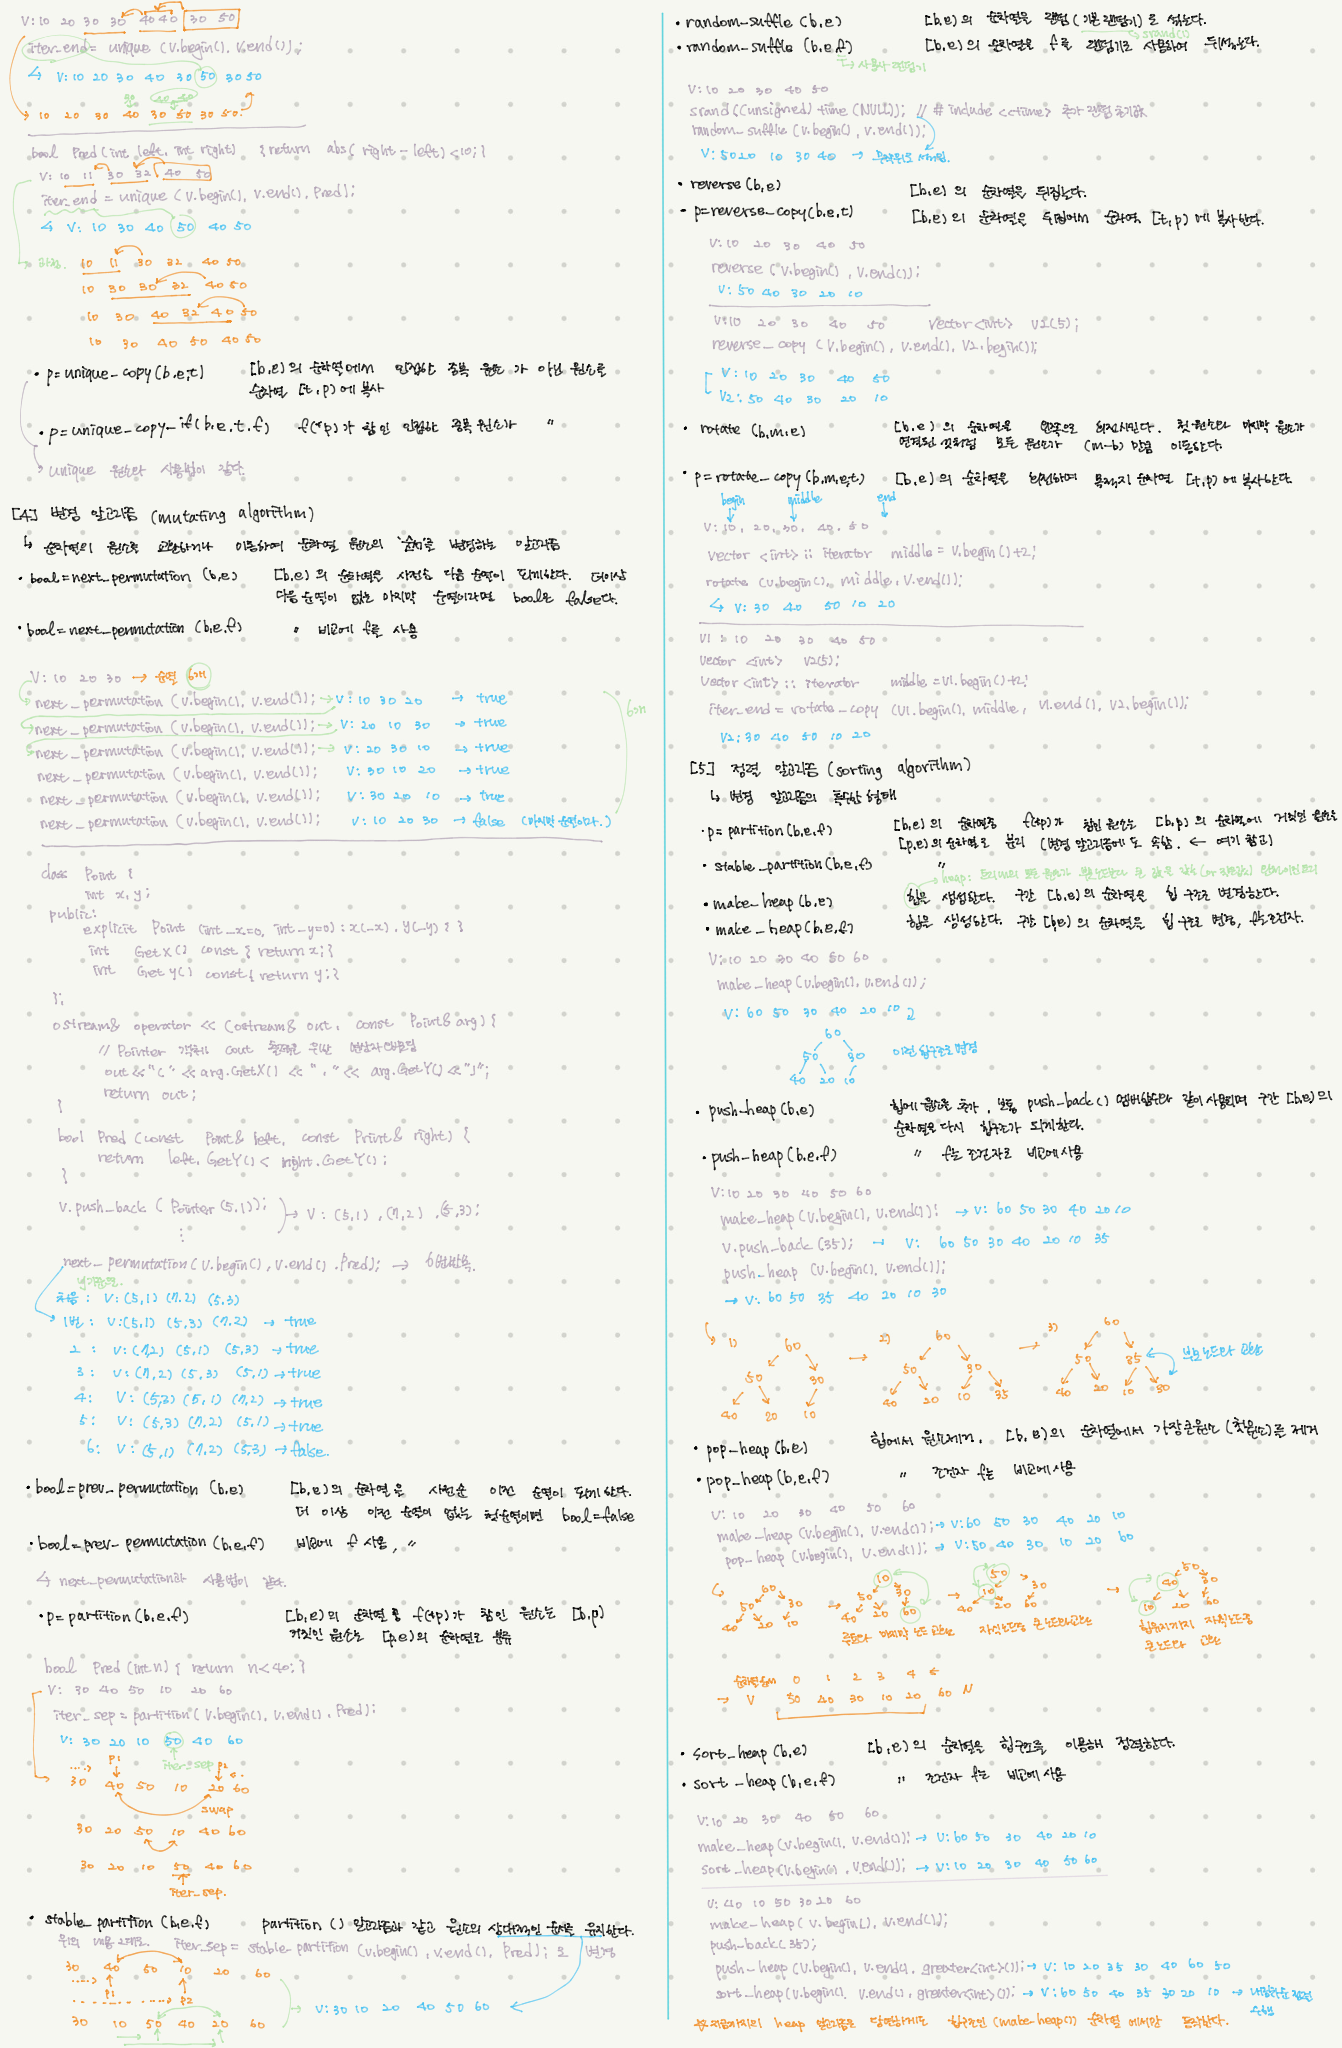 V: 10 20 30 30 40 40 30 50
iter_end = unique (v.begin(), v.end());
↳ V: 10 20 30 40 30 50 30 50
10 20 30 40 30 50 30 50
bool Pred(int left, int right) { return abs(right-left)<10; }
V: 10 11 30 32 40 50
iter_end = unique (v.begin(), v.end(), Pred);
↳ V: 10 30 40 50 40 50
과정. 10 11 30 32 40 50
10 30 30 32 40 50
10 30 40 32 40 50
10 30 40 50 40 50
• p=unique_copy(b,e,t) [b,e)의 순차열에서 인접한 중복 원소가 아닌 원소를
순차열 [t,p)에 복사
• p=unique_copy_if(b,e,t,f) f(*p)가 참인 인접한 중복 원소가 "
unique 원소와 사용법이 같다.
[4] 변경 알고리즘 (mutating algorithm)
↳ 순차열의 원소를 교환하거나 이동하여 순차열 원소의 '순서'를 변경하는 알고리즘
• bool=next_permutation (b,e) [b,e)의 순차열은 사전순 다음 순열이 되게한다. 더이상
다음 순열이 없는 마지막 순열이라면 bool은 false다.
• bool=next_permutation (b,e,f) " 비교에 f를 사용
V: 10 20 30 → 순열 6개
next_permutation (v.begin(), v.end()); → V: 10 30 20 → true
next_permutation (v.begin(), v.end()); → V: 20 10 30 → true
next_permutation (v.begin(), v.end()); → V: 20 30 10 → true
next_permutation (v.begin(), v.end()); V: 30 10 20 → true
next_permutation (v.begin(), v.end()); V: 30 20 10 → true
next_permutation (v.begin(), v.end()); V: 10 20 30 → false (마지막 순열이다.)
6개
class Point {
int x, y;
public:
explicit Point (int _x=0, int _y=0) : x(_x), y(_y) { }
int GetX() const { return x; }
int GetY() const { return y; }
};
ostream& operator << (ostream& out, const Point& arg) {
// Pointer 객체의 cout 출력을 위한 연산자 오버로딩
out << "(" << arg.GetX() << "," << arg.GetY() << ")";
return out;
}
bool Pred (const Point& left, const Print& right) {
return left.GetY() < right.GetY();
}
v.push_back ( Pointer (5,1)); → V: (5,1), (7,2), (5,3);
⋮
next_permutation (v.begin(), v.end(), Pred); → 6번반복.
처음: V: (5,1) (7,2) (5,3)
1번: V: (5,1) (5,3) (7,2) → true
2: V: (7,2) (5,1) (5,3) → true
3: V: (7,2) (5,3) (5,1) → true
4: V: (5,3) (5,1) (7,2) → true
5: V: (5,3) (7,2) (5,1) → true
6: V: (5,1) (7,2) (5,3) → false.
• bool=prev_permutation (b,e) [b,e)의 순차열은 사전순 이전 순열이 되게 한다.
더 이상 이전 순열이 없는 첫순열이면 bool=false
• bool=prev_permutation (b,e,f) 비교에 f 사용, "
↳ next_permutation과 사용법이 같다.
• p=partition(b,e,f) [b,e)의 순차열 중 f(*p)가 참인 원소는 [b,p)
거짓인 원소는 [p,e)의 순차열로 분류
bool Pred (int n) { return n<40; }
V: 30 40 50 10 20 60
iter_sep = partition (v.begin(), v.end(), Pred);
V: 30 20 10 50 40 60
iter_sep
p1 p2
30 40 50 10 20 60
swap
30 20 50 10 40 60
30 20 10 50 40 60
iter_sep.
• stable_partition (b,e,f) partition () 알고리즘과 같고 원소의 상대적인 순서를 유지한다.
위의 내용 그대로. iter_sep = stable_partition (v.begin(), v.end(), Pred); 로 변경
30 40 50 10 20 60
p1 p2
30 10 50 40 20 60
→ V: 30 10 20 40 50 60
• random_suffle (b,e) [b,e)의 순차열을 랜덤(기본 랜덤기)로 섞는다.
srand()
• random_suffle (b,e,f) [b,e)의 순차열을 f를 랜덤기로 사용하여 뒤섞는다.
→ 사용자 랜덤기
V: 10 20 30 40 50
srand((unsigned) time (NULL)); // # include <ctime> 추가 랜덤 초기값
random_suffle (v.begin(), v.end());
V: 50 20 10 30 40 → 무작위로 섞임.
• reverse (b,e) [b,e)의 순차열을 뒤집는다.
• p=reverse_copy(b,e,t) [b,e)의 순차열을 뒤집어서 순차열 [t,p)에 복사한다.
V: 10 20 30 40 50
reverse (v.begin(), v.end());
V: 50 40 30 20 10
V: 10 20 30 40 50 vector<int> v2(5);
reverse_copy (v.begin(), v.end(), V2.begin());
V: 10 20 30 40 50
V2: 50 40 30 20 10
• rotate (b,m,e) [b,e)의 순차열을 왼쪽으로 회전시킨다. 첫 원소와 마지막 원소가
연결된 것처럼 모든 원소가 (m-b) 만큼 이동한다.
• p=rotate_copy (b,m,e,t) [b,e)의 순차열을 회전하여 목적지 순차열 [t,p)에 복사한다.
begin middle end
V: 10, 20, 30, 40, 50
vector <int> :: iterator middle = v.begin()+2;
rotate (v.begin(), middle, v.end());
↳ V: 30 40 50 10 20
V1: 10 20 30 40 50
vector <int> v2(5);
vector <int> :: iterator middle = v1.begin()+2;
iter_end = rotate_copy (v1.begin(), middle, v1.end(), v2.begin());
V2: 30 40 50 10 20
[5] 정렬 알고리즘 (sorting algorithm)
↳ 변경 알고리즘의 특수한 형태
• p= partition (b,e,f) [b,e)의 순차열중 f(*p)가 참인 원소는 [b,p)의 순차열에 거짓인 원소는
[p,e)의 순차열로 분리 (변경 알고리즘에도 속함. ← 여기 참고)
• stable_partition (b,e,f) "
• make_heap (b,e) 힙을 생성한다. 구간 [b,e)의 순차열을 힙 구조로 변경한다.
• make_heap (b,e,f) 힙을 생성한다. 구간 [b,e)의 순차열을 힙 구조로 변경, f는조건자.
V: 10 20 30 40 50 60
make_heap (v.begin(), v.end());
V: 60 50 30 40 20 10
60
50 30
40 20 10
이런 힙구조로 변경
• push_heap (b,e) 힙에 원소를 추가, 보통 push_back() 멤버함수와 같이 사용되며 구간 [b,e)의
순차열을 다시 힙구조가 되게한다.
• push_heap (b,e,f) " f는 조건자로 비교에 사용
V: 10 20 30 40 50 60
make_heap (v.begin(), v.end()); → V: 60 50 30 40 20 10
v.push_back (35); → V: 60 50 30 40 20 10 35
push_heap (v.begin(), v.end());
→ V: 60 50 35 40 20 10 30
1) 60 → 2) 60 → 3) 60
50 30 50 30 50 35 부모노드와 교환
40 20 10 40 20 10 35 40 20 10 30
• pop_heap (b,e) 힙에서 원소제거. [b,e)의 순차열에서 가장큰원소 (첫원소)를 제거
• pop_heap (b,e,f) " 조건자 f는 비교에 사용
V: 10 20 30 40 50 60
make_heap (v.begin(), v.end()); → V: 60 50 30 40 20 10
pop_heap (v.begin(), v.end()); → V: 50 40 30 10 20 60
60 10 50 50
50 30 50 30 10 30 40 30
40 20 10 40 20 60 40 20 60 10 20 60
루트와 마지막 노드 교환 자식노드중 큰 노드와교환 힙유지까지 자식노드중
큰노드와 교환
순차열순서 0 1 2 3 4 5
→ V 50 40 30 10 20 60 N
• sort_heap (b,e) [b,e)의 순차열을 힙구조를 이용해 정렬한다.
• sort_heap (b,e,f) " 조건자 f는 비교에 사용
V: 10 20 30 40 50 60
make_heap (v.begin(), v.end()); → V: 60 50 30 40 20 10
sort_heap (v.begin(), v.end()); → V: 10 20 30 40 50 60
V: 40 10 50 30 20 60
make_heap ( v.begin(), v.end());
push_back (35);
push_heap (v.begin(), v.end(), greater<int>()); → V: 10 20 35 30 40 60 50
sort_heap (v.begin(), v.end(), greater<int>()); → V: 60 50 40 35 30 20 10 → 내림차순 정렬
수행
※ 지금까지의 heap 알고리즘은 당연하게도 힙구조인 (make_heap()) 순차열 에서만 동작한다.